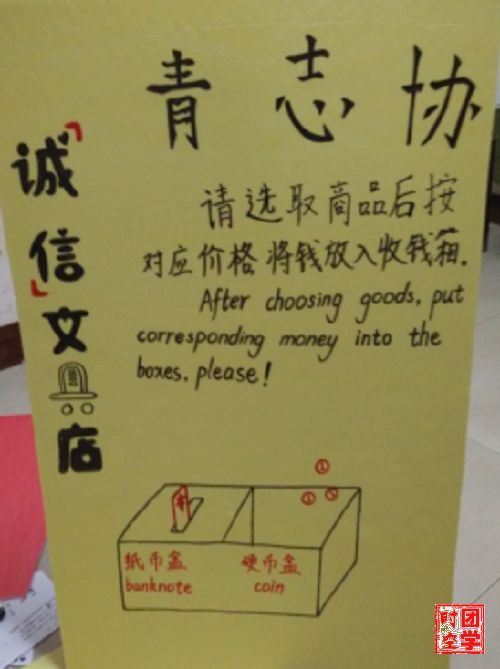 青志协
「诚信」文具店
请选取商品后按
对应价格将钱放入收钱箱.
After choosing goods, put
corresponding money into the
boxes, please!
¥
① ① ①
纸币盒 硬币盒
banknote coin